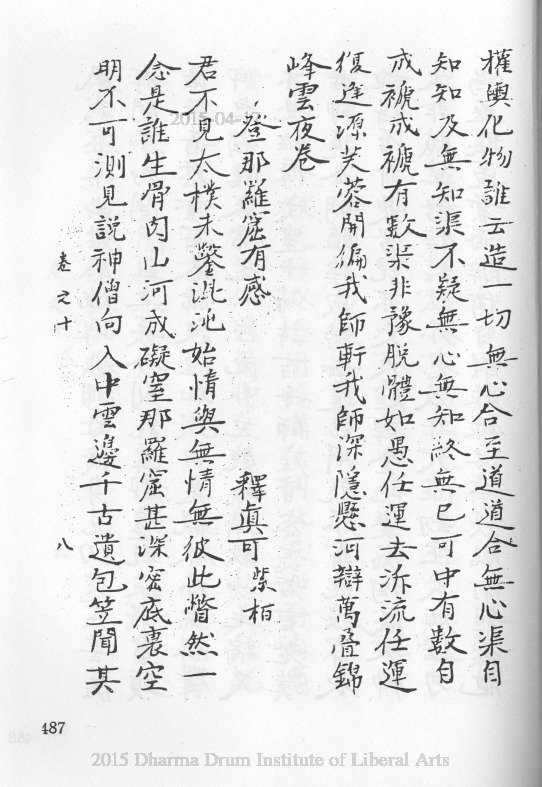 權輿化物誰云造一切無心合至道道合無心渠自
知知及無知渠不疑無心無知終無已可中有數自
成褫成褫有數渠非豫脫體如愚任運去泝流任運
復逢源芙蓉開徧我師軒我師深隱懸河辯萬疊錦
峰雲夜卷
登那羅窟有感 釋真可 紫柏
君不見太樸未鑿混沌始情與無情無彼此瞥然一
念是誰生骨肉山河成礙窒那羅窟甚深密底裏空
明不可測見說神僧向入中雲邊千古遺包笠聞其
卷之十 八
487
2015-04-
2015 Dharma Drum Institute of Liberal Arts